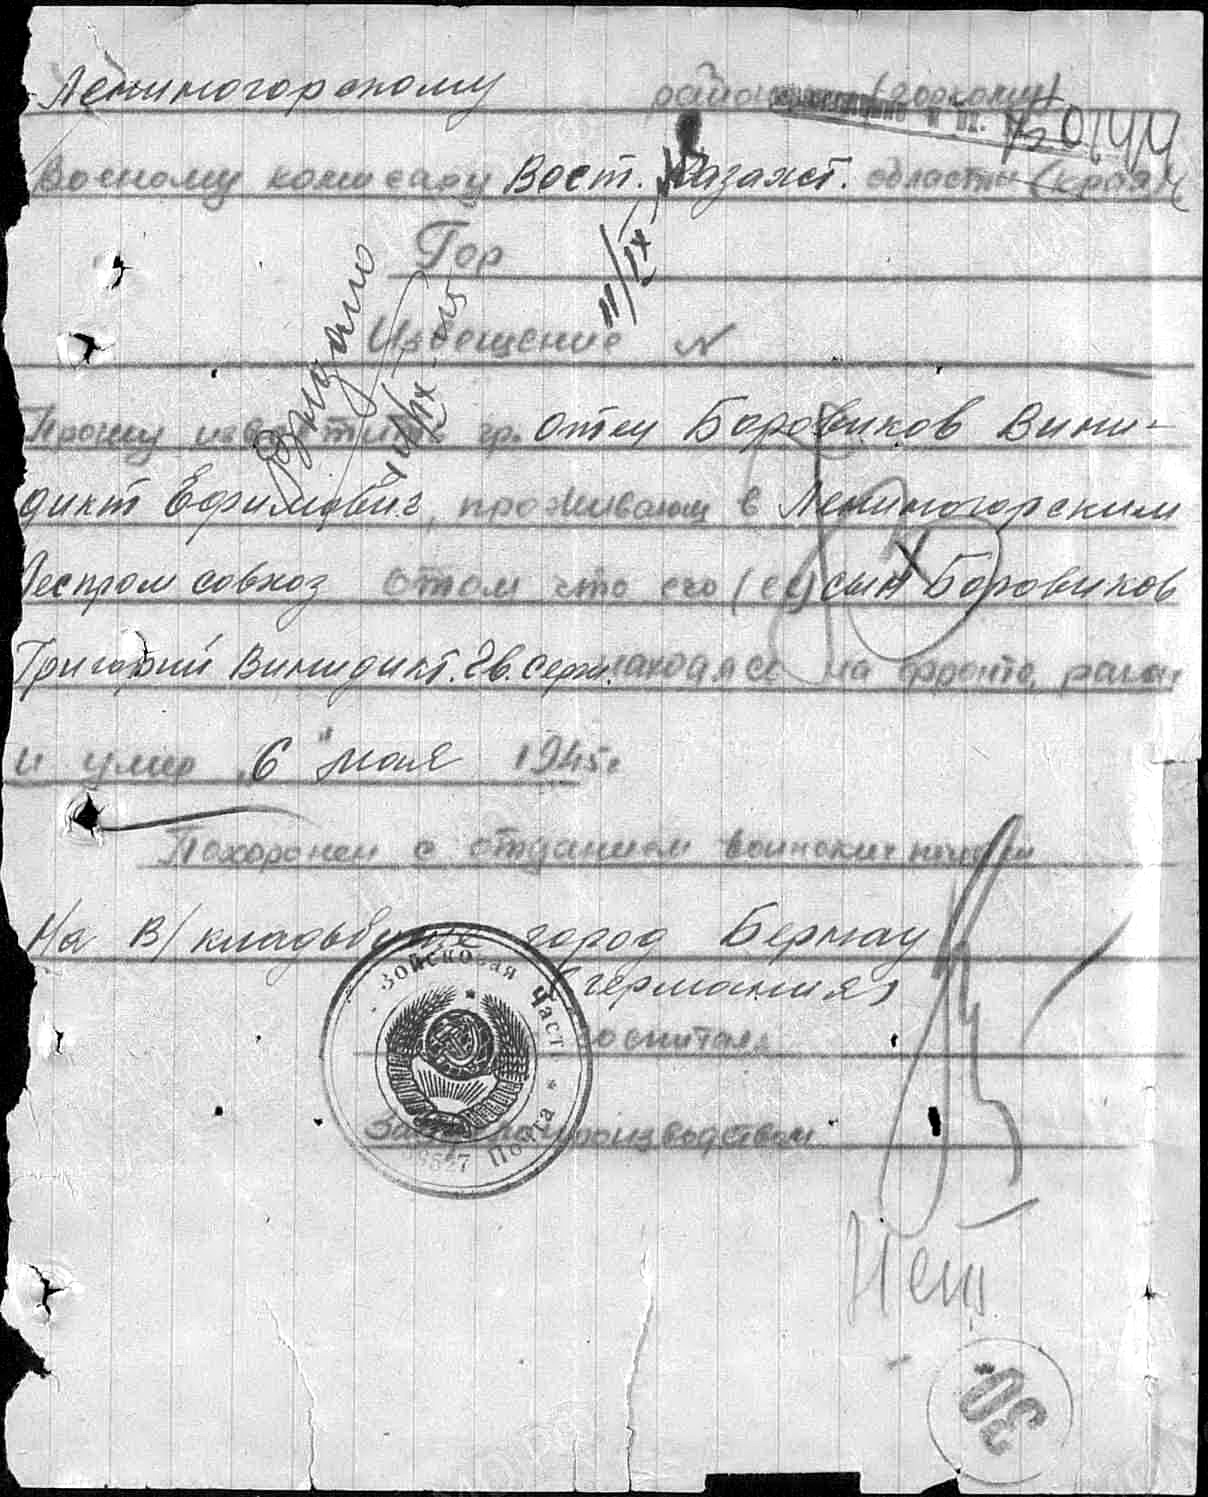 Лениногорскому район (горкому)
75044
Военому комисару Вост. Казахст. области (края)
Гор
11/IX
Извещение N
Прошу известить гр. отец Боровиков Вини-
дикт Ефимович, проживающ в Лениногорским
Леспром совхоз отом что его (ее) сын Боровиков
Григорий Винидикт. Гв. серж. находясь на фронте, ранен
и умер "6" мая 1945г.
Похоронен с отданием воинских почестей
На В/кладьбище город Бернау
(германия)
госпиталя
Войсковая Часть
Полевая Почта
Зав. делопроизводством
Нет
30